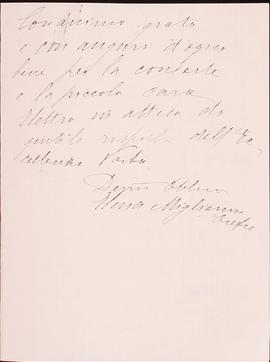 Con animo grato
e con auguri d'ogni
bene per la consorte
e la piccola cara
Elettra in attesa di
gentile risposta dell'Ec
cellenza Vostra
Dev.ma Obbl.ma
Elena Migliacci